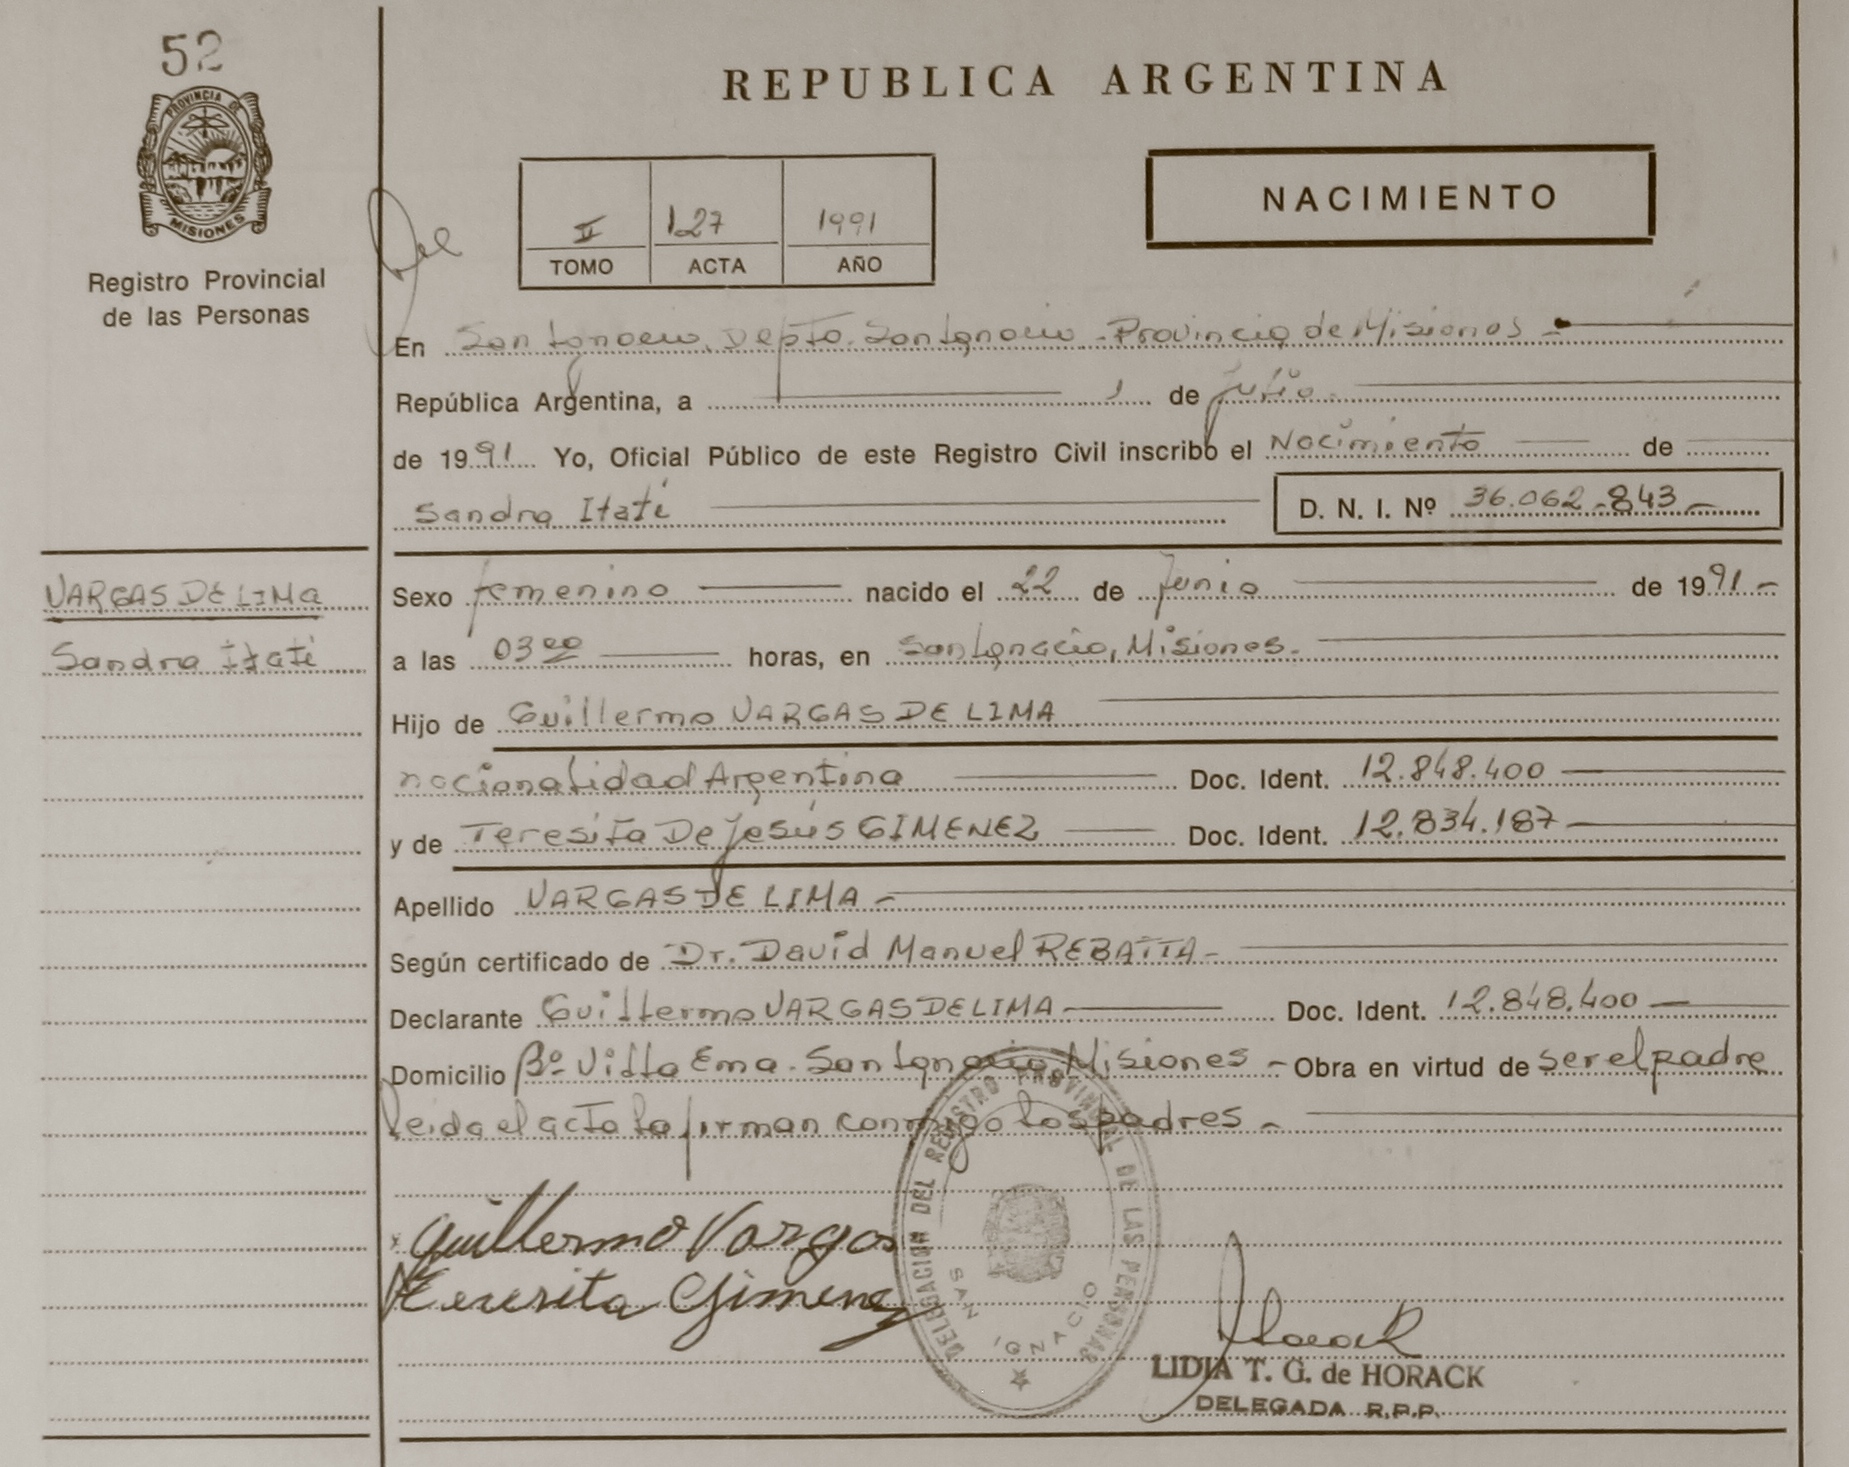 52
PROVINCIA DE
MISIONES
Registro Provincial
de las Personas
REPUBLICA ARGENTINA
NACIMIENTO
II 127 1991
TOMO ACTA AÑO
En San Ignacio, Depto. San Ignacio - Provincia de Misiones -
República Argentina, a 1 de Julio
de 1991. Yo, Oficial Público de este Registro Civil inscribo el Nacimiento de
Sandra Itatí D. N. I. Nº 36.062.843 -
VARGAS DE LIMA
Sandra Itatí
Sexo femenino nacido el 22 de Junio de 1991 -
a las 03 00 horas, en San Ignacio, Misiones.
Hijo de Guillermo VARGAS DE LIMA
nacionalidad Argentina Doc. Ident. 12.848.400
y de Teresita De Jesús GIMENEZ Doc. Ident. 12.834.187
Apellido VARGAS DE LIMA -
Según certificado de Dr. David Manuel REBATTA -
Declarante Guillermo VARGAS DE LIMA Doc. Ident. 12.848.400
Domicilio Bº Villa Ema. San Ignacio Misiones - Obra en virtud de ser el padre
leida el acta la firman conmigo los padres -
Guillermo Vargas
Teresita Gimenez
DELEGACION DEL REGISTRO PROVINCIAL DE LAS PERSONAS
SAN IGNACIO
Horack
LIDIA T. G. de HORACK
DELEGADA R.P.P.